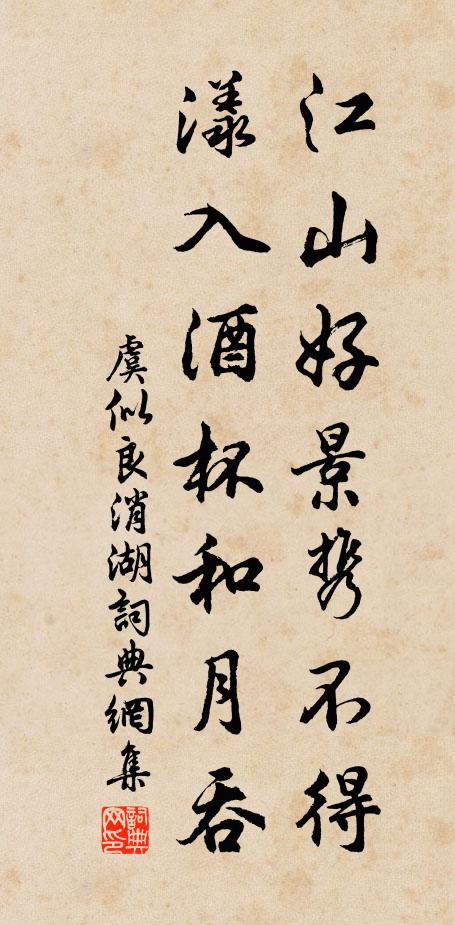 江山好景携不得
漾入酒杯和月吞
虞似良消湖詞典網集
詞典网印